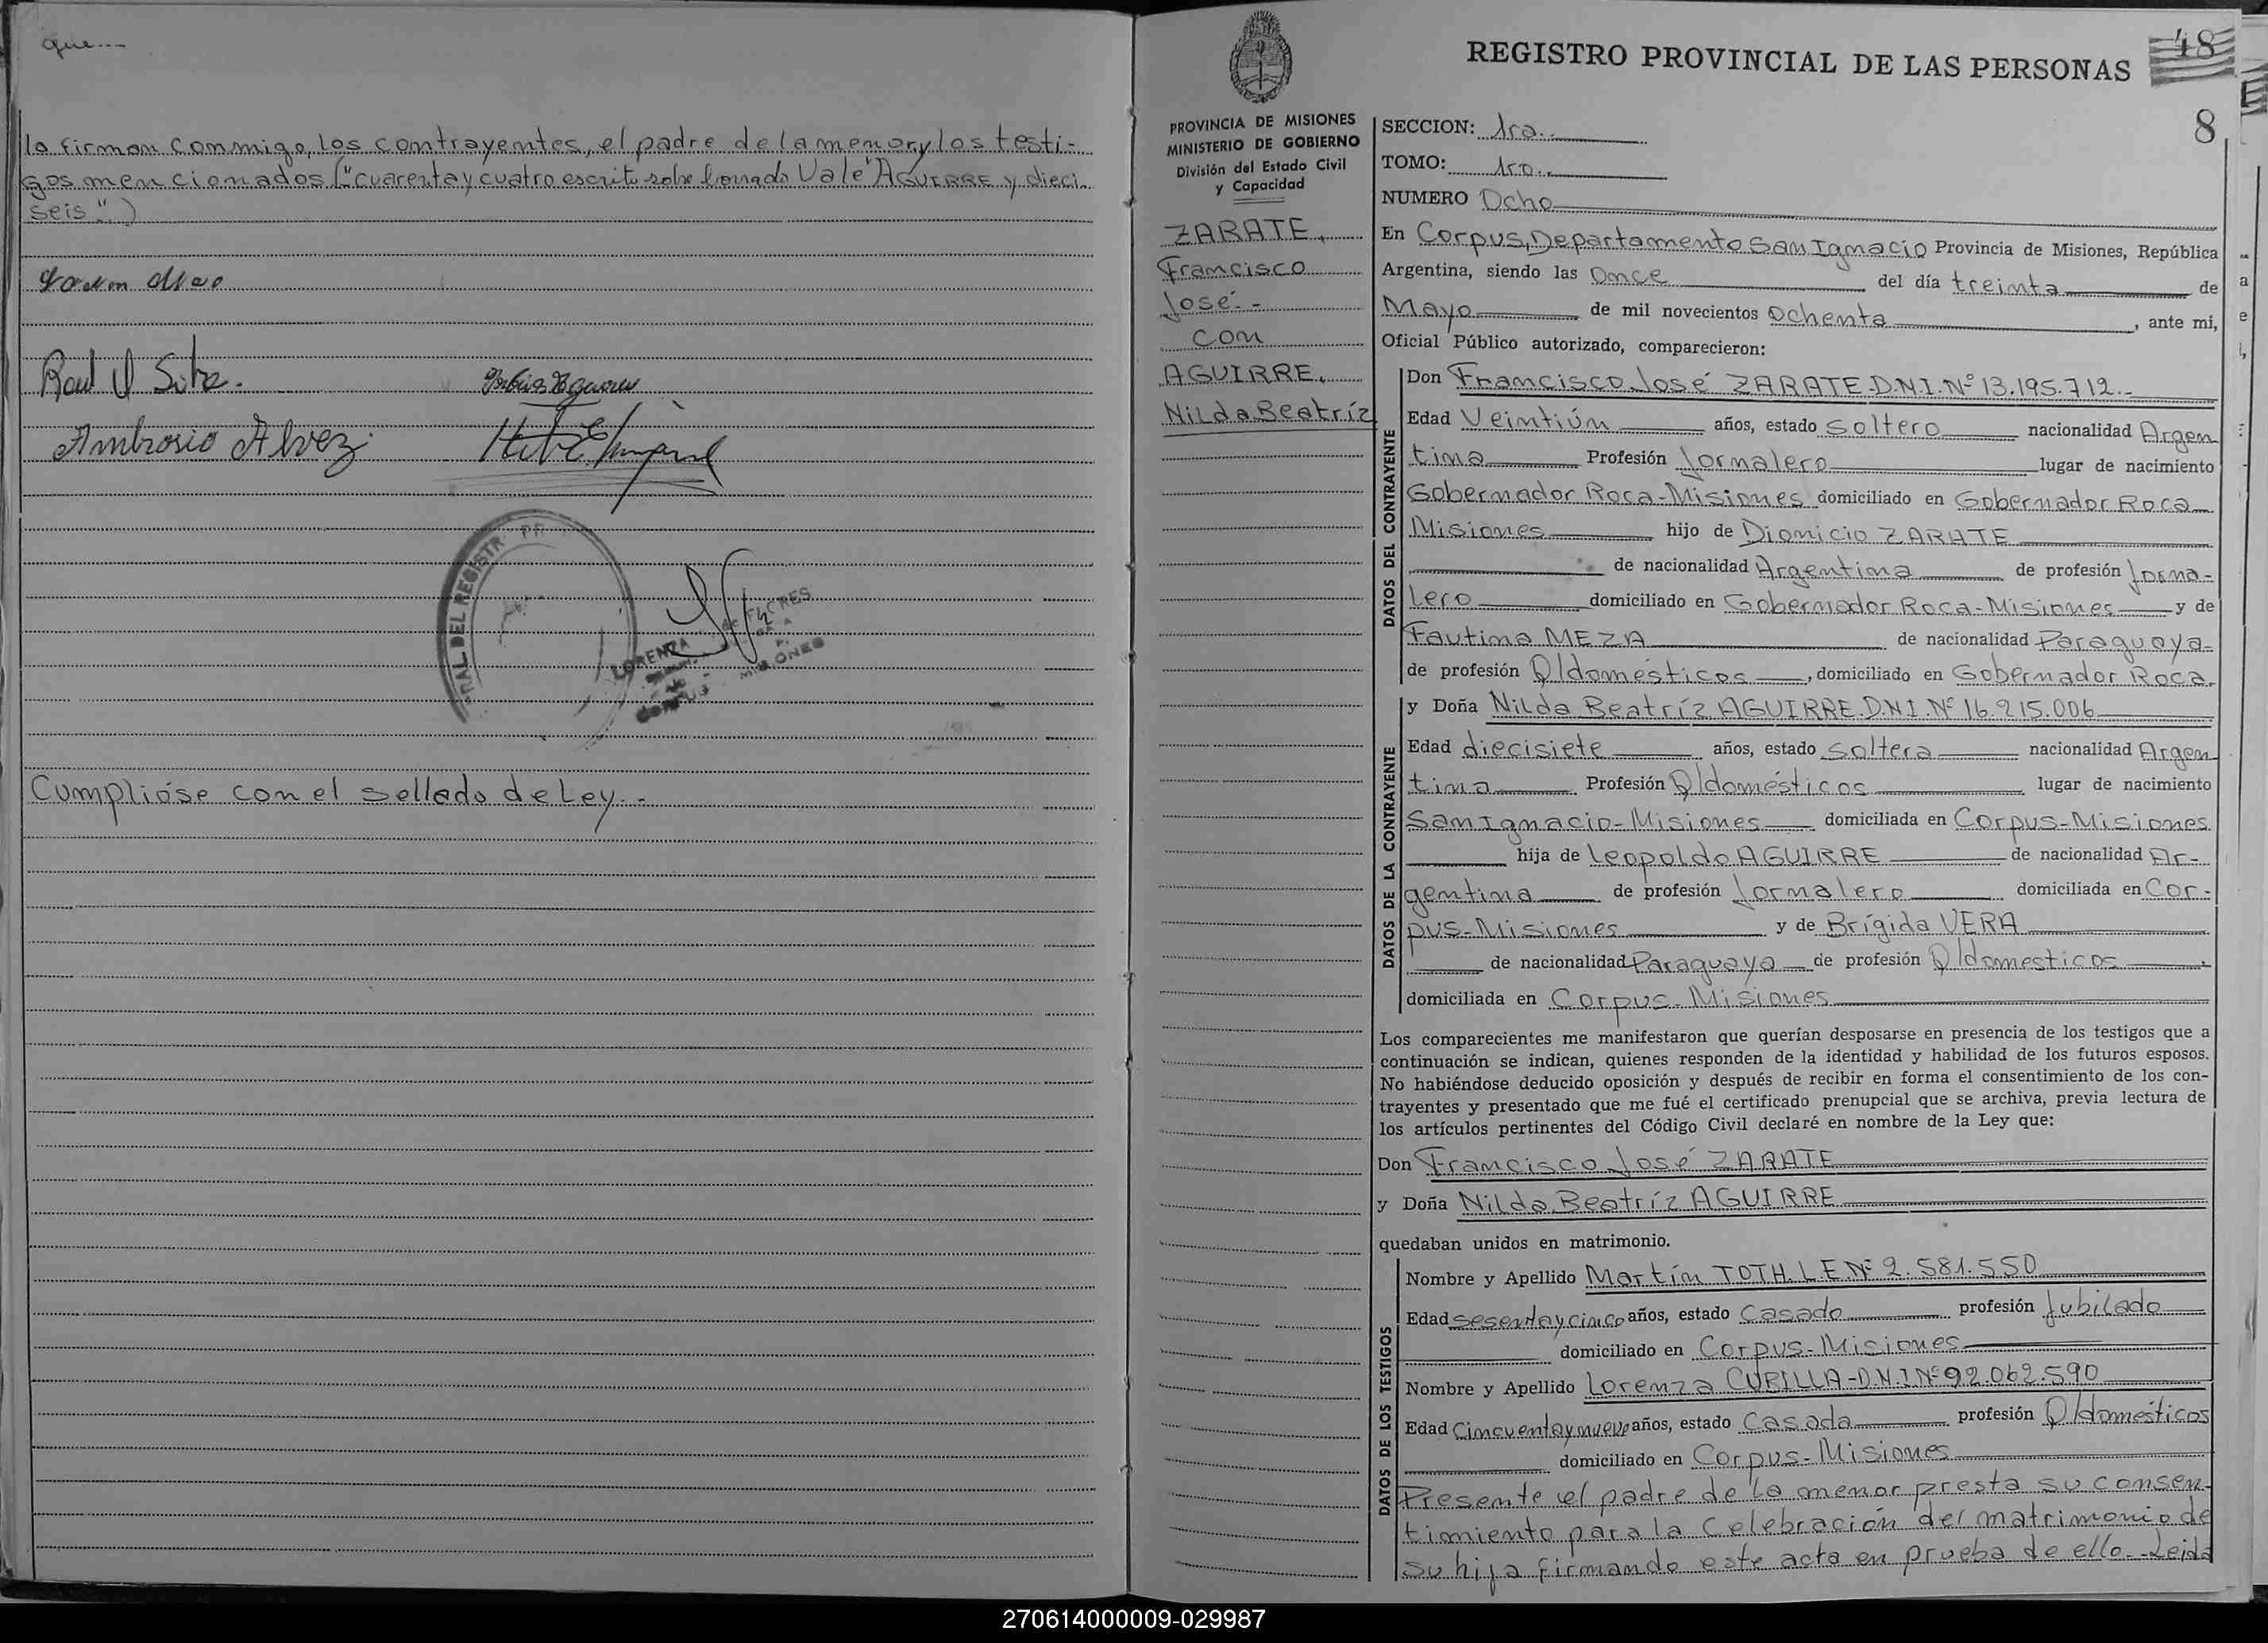 que...
la firman conmigo, los contrayentes, el padre de la menor y los testi-
gos mencionados ("cuarenta y cuatro escrito sobre borrado Vale" AGUIRRE y dieci-
seis")
Raul
Ambrosio Alvez
RAL DEL REGISTR PR
LORENZA de FLORES
MISIONES
Cumplióse con el sellado de Ley.-
REGISTRO PROVINCIAL DE LAS PERSONAS
48
8
PROVINCIA DE MISIONES
MINISTERIO DE GOBIERNO
División del Estado Civil
y Capacidad
ZARATE,
Francisco
José.-
con
AGUIRRE,
Nilda Beatríz
SECCION: 1ra..
TOMO: 1ro..
NUMERO Ocho
En Corpus, Departamento San Ignacio Provincia de Misiones, República
Argentina, siendo las Once del día treinta de
Mayo de mil novecientos Ochenta, ante mi,
Oficial Público autorizado, comparecieron:
DATOS DEL CONTRAYENTE
Don Francisco José ZARATE.D.N.I.Nº 13.195.712.-
Edad Veintiún años, estado soltero nacionalidad Argen
tina Profesión Jornalero lugar de nacimiento
Gobernador Roca-Misiones domiciliado en Gobernador Roca
Misiones hijo de Dionicio ZARATE
de nacionalidad Argentina de profesión Jorna-
lero domiciliado en Gobernador Roca-Misiones y de
Fautina MEZA de nacionalidad Paraguaya-
de profesión Q/domésticos, domiciliado en Gobernador Roca.
DATOS DE LA CONTRAYENTE
y Doña Nilda Beatríz AGUIRRE.D.N.I.Nº 16.215.006
Edad diecisiete años, estado soltera nacionalidad Argen
tina Profesión Q/domésticos lugar de nacimiento
San Ignacio-Misiones domiciliada en Corpus-Misiones
hija de Leopoldo AGUIRRE de nacionalidad Ar-
gentina de profesión Jornalero domiciliada en Cor-
pus-Misiones y de Brígida VERA
de nacionalidad Paraguaya de profesión Q/domesticos,
domiciliada en Corpus-Misiones
Los comparecientes me manifestaron que querían desposarse en presencia de los testigos que a
continuación se indican, quienes responden de la identidad y habilidad de los futuros esposos.
No habiéndose deducido oposición y después de recibir en forma el consentimiento de los con-
trayentes y presentado que me fué el certificado prenupcial que se archiva, previa lectura de
los artículos pertinentes del Código Civil declaré en nombre de la Ley que:
Don Francisco José ZARATE
y Doña Nilda Beatríz AGUIRRE
quedaban unidos en matrimonio.
DATOS DE LOS TESTIGOS
Nombre y Apellido Martín TOTH.L.E Nº 2.581.550
Edad sesenta y cinco años, estado Casado profesión Jubilado
domiciliado en Corpus-Misiones
Nombre y Apellido Lorenza CUBILLA-D.N.I Nº 92.062.590
Edad Cincuenta y nueve años, estado Casada profesión Q/domésticos
domiciliado en Corpus-Misiones
Presente el padre de la menor presta su consen-
timiento para la celebración del matrimonio de
su hija firmando este acta en prueba de ello.-Leida
270614000009-029987